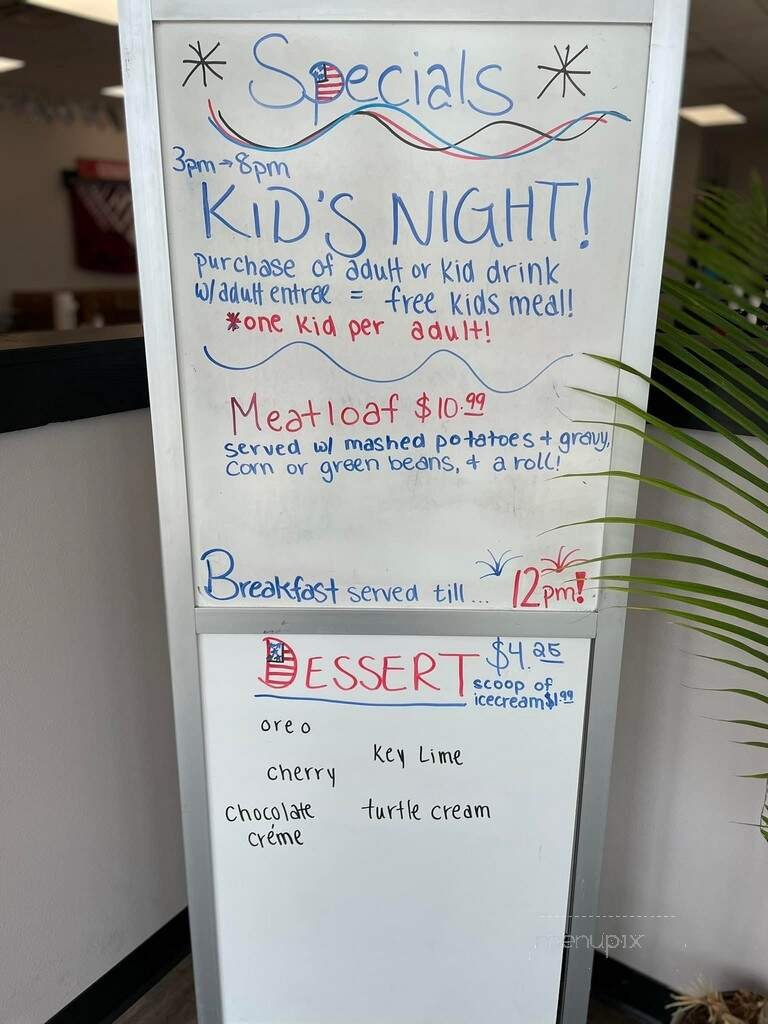 Specials
3pm→8pm
KID'S NIGHT!
purchase of adult or kid drink
w/adult entree = free kids meal!
*one kid per adult!
Meatloaf $10.99
served w/ mashed potatoes + gravy,
corn or green beans, + a roll!
Breakfast served till... 12pm!
DESSERT $4.25
scoop of
icecream $1.99
oreo
Key Lime
cherry
chocolate
créme
turtle cream
menupix